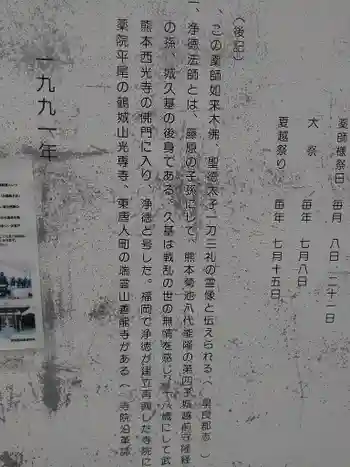 薬師様祭日 毎月 八日 二十二日
大祭 毎年 七月八日
夏越祭り 毎年 七月十五日
(後記)
、この薬師如来木佛、聖徳太子一刀三礼の霊像と伝えられる(早良郡志)
一、浄徳法師とは、藤原の子孫にして、熊本菊池八代能隆の第四子城越前守隆経
の孫、城久基の後身である。久基は戦乱の世の無情を感じ、十八歳にして武
熊本西光寺の佛門に入り、浄徳と号した。福岡で浄徳が建立再興した寺院に
薬院平尾の鶴城山光専寺、東唐人町の端雲山善龍寺がある(寺院沿革誌
一九九一年